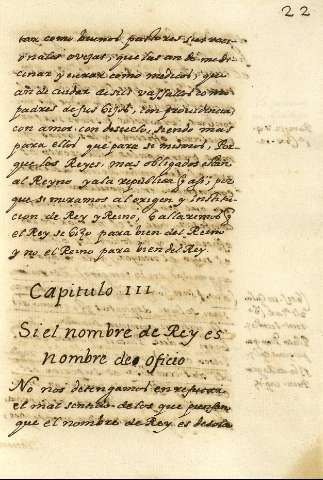 22
tar como buenos pastores sus ran
y nales ovejas; que las an de me di
cinar y curar como medicos; que
an de cuidar de sus vassallos como
padres de sus hijos, con providencia,
con amor, con desvelo, siendo mas
para ellos que para si mismos, Por
que los Reyes, mas obligados estan
al Reyno y a la republica q̃ assi; por
que si miramos al origen, e institu
cion de Rey y Reino, hallaremos q̃
el Rey se hizo para bien del Reino
y no el Reino para bien del Rey
Capitulo III
Si el nombre de Rey es
nombre de oficio
No nos detengamos en refutar
el mal sentido de los que piensan
que el nombre de Rey es de sola